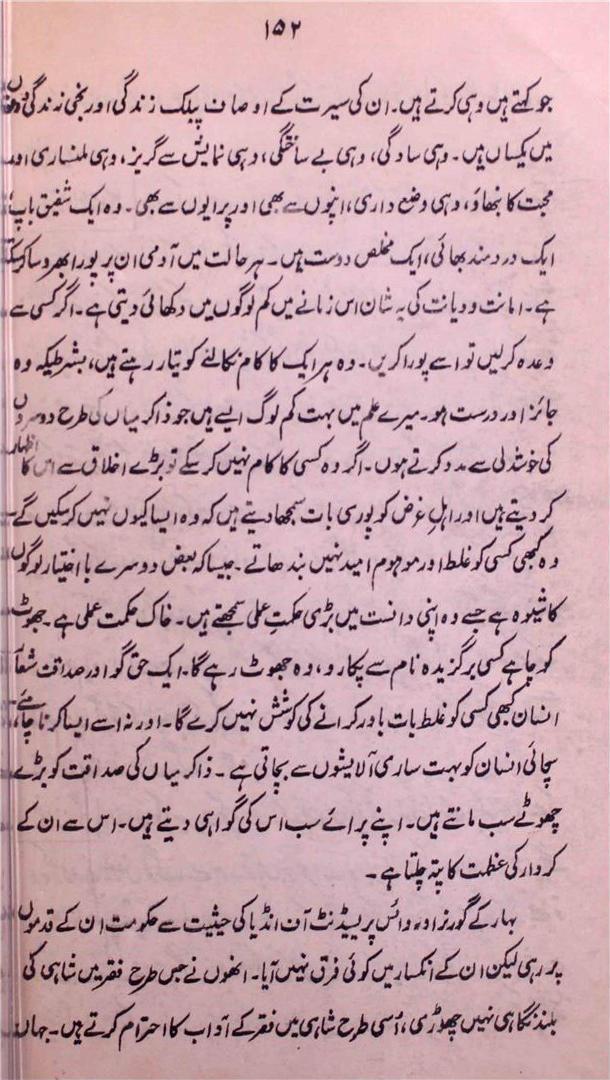 ۱۵۲
جو کہتے ہیں وہی کرتے ہیں۔ ان کی سیرت کے اوصاف پبلک زندگی اور نجی زندگی دونوں
میں یکساں ہیں۔ وہی سادگی، وہی بے ساختگی، وہی نمایش سے گریز، وہی ملنساری اور
محبت کا نبھاؤ، وہی وضع داری، اپنوں سے بھی اور پرایوں سے بھی۔ وہ ایک شفیق باپ،
ایک دردمند بھائی، ایک مخلص دوست ہیں۔ ہر حالت میں آدمی ان پر پورا بھروسا کر سکتا
ہے۔ امانت و دیانت کی یہ شان اس زمانے میں کم لوگوں میں دکھائی دیتی ہے۔ اگر کسی سے
وعدہ کر لیں تو اسے پورا کریں۔ وہ ہر ایک کا کام نکالنے کو تیار رہتے ہیں، بشرطیکہ وہ
جائز اور درست ہو۔ میرے علم میں بہت کم لوگ ایسے ہیں جو ذاکر میاں کی طرح دوسروں
کی خوشدلی سے مدد کرتے ہوں۔ اگر وہ کسی کا کام نہیں کر سکے تو بڑے اخلاق سے اس کا اظہار
کر دیتے ہیں اور اہلِ غرض کو پوری بات سمجھا دیتے ہیں کہ وہ ایسا کیوں نہیں کر سکیں گے۔
وہ کبھی کسی کو غلط اور موہوم امید نہیں بندھاتے۔ جیسا کہ بعض دوسرے با اختیار لوگوں
کا شیوہ ہے جسے وہ اپنی دانست میں بڑی حکمتِ عملی سمجھتے ہیں۔ خاک حکمت عملی ہے۔ جھوٹ
کو چاہے کسی برگزیدہ نام سے پکارو، وہ جھوٹ رہے گا۔ ایک حق گو اور صداقت شعار
انسان کبھی کسی کو غلط بات باور کرانے کی کوشش نہیں کرے گا۔ اور نہ اسے ایسا کرنا چاہئے،
سچائی انسان کو بہت ساری آلایشوں سے بچاتی ہے۔ ذاکر میاں کی صداقت کو بڑے
چھوٹے سب مانتے ہیں۔ اپنے پرائے سب اس کی گواہی دیتے ہیں۔ اس سے ان کے
کردار کی عظمت کا پتہ چلتا ہے۔
بہار کے گورنر اور وائس پریسیڈنٹ آف انڈیا کی حیثیت سے حکومت ان کے قدموں
پر رہی لیکن ان کے انکسار میں کوئی فرق نہیں آیا۔ انھوں نے جس طرح فقر میں شاہی کی
بلند نگاہی نہیں چھوڑی، اُسی طرح شاہی میں فقر کے آداب کا احترام کرتے ہیں۔ جہاں